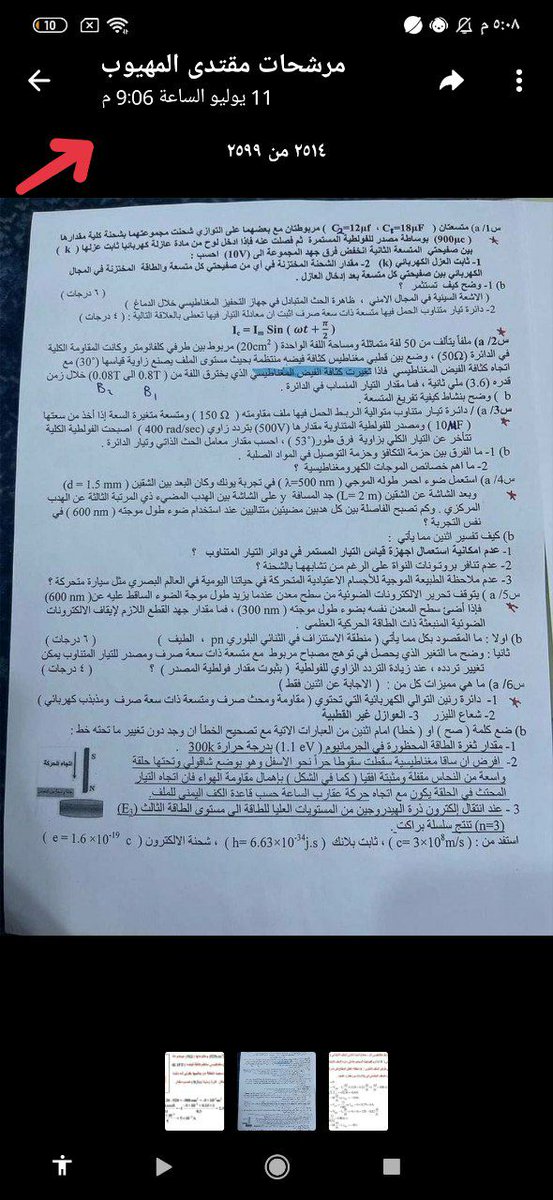 10
٥:٠٨ م
مرشحات مقتدى المهيوب
11 يوليو الساعة 9:06 م
٢٥١٤ من ٢٥٩٩
س1/ a) متسعتان ( C₂=12μf ، C₁=18μF ) مربوطتان مع بعضهما على التوازي شحنت مجموعتهما بشحنة كلية مقدارها
(900μc) بوساطة مصدر للفولطية المستمرة ثم فصلت عنه فإذا ادخل لوح من مادة عازلة كهربائيا ثابت عزلها ( k )
بين صفيحتي المتسعة الثانية انخفض فرق جهد المجموعة الى (10V) احسب :
1- ثابت العزل الكهربائي (k) 2- مقدار الشحنة المختزنة في أي من صفيحتي كل متسعة والطاقة المختزنة في المجال
الكهربائي بين صفيحتي كل متسعة بعد إدخال العازل .
b) 1- وضح كيف تستثمر ؟
( الاشعة السينية في المجال الامني ، ظاهرة الحث المتبادل في جهاز التحفيز المغناطيسي خلال الدماغ ) ( ٦ درجات )
2- دائرة تيار متناوب الحمل فيها متسعة ذات سعة صرف اثبت ان معادلة التيار فيها تعطى بالعلاقة التالية : ( ٤ درجات )
I꜀ = Iₘ Sin ( ωt + π/2 )
س2/ a) ملفاً يتألف من 50 لفة متماثلة ومساحة اللفة الواحدة (20cm²) مربوط بين طرفي كلفانومتر وكانت المقاومة الكلية
في الدائرة (50Ω) ، وضع بين قطبي مغناطيس كثافة فيضه منتظمة بحيث مستوى الملف يصنع زاوية قياسها (30°) مع
اتجاه كثافة الفيض المغناطيسي فإذا تغيرت كثافة الفيض المغناطيسي الذي يخترق اللفة من (0.8T الى 0.08T) خلال زمن
قدره (3.6) ملي ثانية ، فما مقدار التيار المنساب في الدائرة .
B₁ B₂
b ) وضح بنشاط كيفية تفريغ المتسعة .
س3/ a) / دائرة تيار متناوب متوالية الربط الحمل فيها ملف مقاومته ( 150 Ω ) ومتسعة متغيرة السعة إذا أخذ من سعتها
( 10MF ) ومصدر للفولطية المتناوبة مقدارها (500V) بتردد زاوي (400 rad/sec ) اصبحت الفولطية الكلية
تتأخر عن التيار الكلي بزاوية فرق طور(53°) ، احسب مقدار معامل الحث الذاتي وتيار الدائرة .
b) 1- ما الفرق بين حزمة التكافؤ وحزمة التوصيل في المواد الصلبة .
2- ما اهم خصائص الموجات الكهرومغناطيسية ؟
س4/ a) استعمل ضوء احمر طوله الموجي ( λ=500 nm ) في تجربة يونك وكان البعد بين الشقين ( d = 1.5 mm )
وبعد الشاشة عن الشقين (L= 2 m) جد المسافة y على الشاشة بين الهدب المضيء ذي المرتبة الثالثة عن الهدب
المركزي . وكم تصبح الفاصلة بين كل هدبين مضيئين متتاليين عند استخدام ضوء طول موجته ( 600 nm ) في
نفس التجربة ؟
b) كيف تفسير اثنين مما يأتي :
1- عدم امكانية استعمال اجهزة قياس التيار المستمر في دوائر التيار المتناوب ؟
2- عدم تنافر بروتونات النواة على الرغم من تشابهها بالشحنة ؟
3- عدم ملاحظة الطبيعة الموجية للأجسام الاعتيادية المتحركة في حياتنا اليومية في العالم البصري مثل سيارة متحركة ؟
س5/ a) يتوقف تحرير الالكترونات الضوئية من سطح معدن عندما يزيد طول موجة الضوء الساقط عليه عن(600 nm)
فإذا أضئ سطح المعدن نفسه بضوء طول موجته ( 300 nm) ، فما مقدار جهد القطع اللازم لإيقاف الالكترونات
الضوئية المنبعثة ذات الطاقة الحركية العظمى .
b) اولا : ما المقصود بكل مما يأتي ( منطقة الاستنزاف في الثنائي البلوري pn ، الطيف ) ( ٦ درجات )
ثانيا : وضح ما التغير الذي يحصل في توهج مصباح مربوط مع متسعة ذات سعة صرف ومصدر للتيار المتناوب يمكن
تغيير تردده ، عند زيادة التردد الزاوي للفولطية ( بثبوت مقدار فولطية المصدر ) ؟ ( ٤ درجات )
س6/ a) ما هي مميزات كل من : ( الاجابة عن اثنين فقط )
1- دائرة رنين التوالي الكهربائية التي تحتوي ( مقاومة ومحث صرف ومتسعة ذات سعة صرف ومذبذب كهربائي )
2- شعاع الليزر 3- العوازل غير القطبية
b) ضع كلمة ( صح ) او ( خطا ) امام اثنين من العبارات الاتية مع تصحيح الخطأ ان وجد دون تغيير ما تحته خط :
1- مقدار ثغرة الطاقة المحظورة في الجرمانيوم ( 1.1 eV) بدرجة حرارة 300k .
2- افرض ان ساقا مغناطيسية سقطت سقوطا حراً نحو الاسفل وهو بوضع شاقولي وتحتها حلقة
واسعة من النحاس مقفلة ومثبتة افقيا ( كما في الشكل ) بإهمال مقاومة الهواء فان اتجاه التيار
المحتث في الحلقة يكون مع اتجاه حركة عقارب الساعة حسب قاعدة الكف اليمني للملف
اتجاه الحركة
S
N
3 - عند انتقال إلكترون ذرة الهيدروجين من المستويات العليا للطاقة الى مستوى الطاقة الثالث (E₃)
(n=3) تنتج سلسلة براكت .
استفد من : ( c= 3×10⁸m/s ) ، ثابت بلانك ( h= 6.63×10⁻³⁴j.s ) ، شحنة الالكترون ( e = 1.6 ×10⁻¹⁹ c )